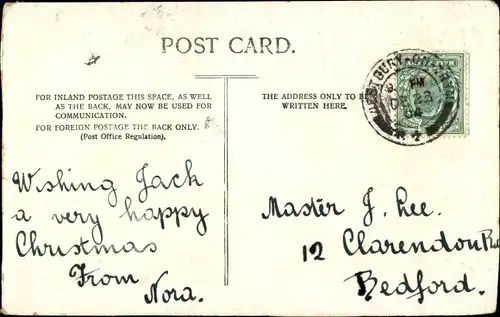 POST CARD.
FOR INLAND POSTAGE THIS SPACE, AS WELL
AS THE BACK, MAY NOW BE USED FOR
COMMUNICATION.
FOR FOREIGN POSTAGE THE BACK ONLY.
(Post Office Regulation).
THE ADDRESS ONLY TO BE
WRITTEN HERE.
Wishing Jack
a very happy
Christmas
From
Nora.
Master J. Lee.
12 Clarendon
Bedford.